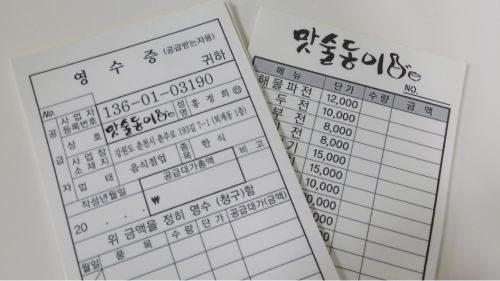 영 수 증 (공급받는자용)
No.
귀하
공급자
사업자등록번호
136-01-03190
상호
맛술동이
성명
홍정희
사업장소재지
강원도 춘천시 춘주로 193길 7-1 (퇴계동 1층)
업태
음식점업
종목
한식
작성년월일
공급대가총액
비고
20 . . .
₩
위 금액을 정히 영수 (청구)함
월일
품목
수량
단가
공급대가(금액)
맛술동이
NO.
메뉴 단가 수량 금액
해물파전 12,000
두전 10,000
부전 8,000
전 8,000
기 15,000
15,000
10,000
10,000
8,000